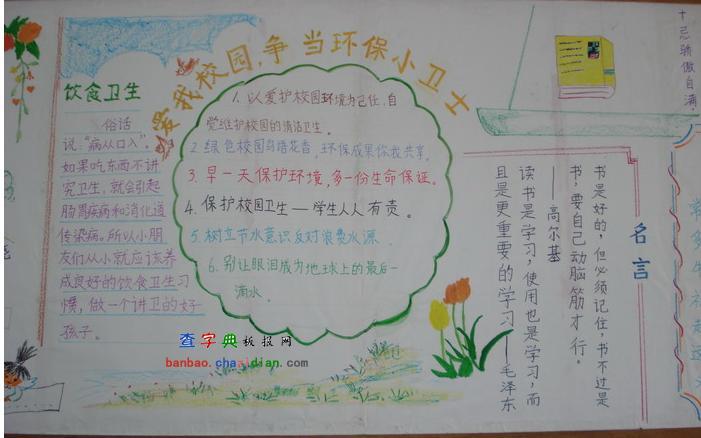 爱我校园,争当环保小卫士
饮食卫生
俗话
说:"病从口入"。
如果吃东西不讲
究卫生,就会引起
肠胃疾病和消化道
传染病。所以小朋
友们从小就应该养
成良好的饮食卫生习
惯,做一个讲卫的好
孩子。
1. 以爱护校园环境为己任,自
觉维护校园的清洁卫生。
2. 绿色校园鸟语花香,环保成果你我共享。
3. 早一天保护环境,多一份生命保证。
4. 保护校园卫生—学生人人有责。
5. 树立节水意识反对浪费水源.
6. 别让眼泪成为地球上的最后一
滴水。
查字典板报网
banbao.chazidian.com
名言
书是好的,但必须记住,书不过是
书,要自己动脑筋才行。
——高尔基
读书是学习,使用也是学习,而
且是更重要的学习——毛泽东
十忌骄傲自满